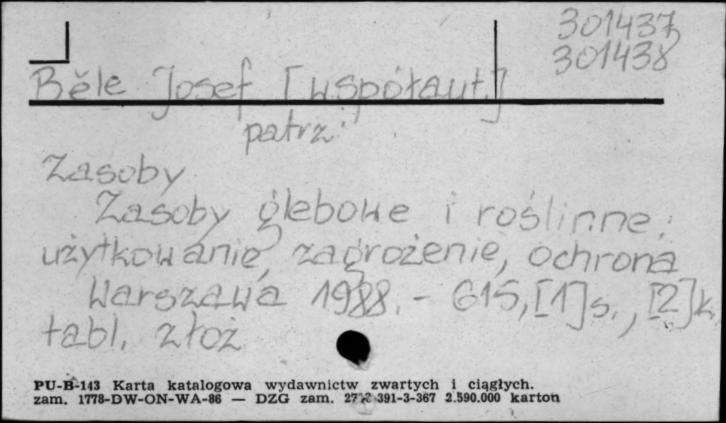 301437
301438
Běle Josef [współaut.]
patrz:
Zasoby
Zasoby glebowe i roślinne:
użytkowanie, zagrożenie, ochrona
Warszawa 1988. - 615, [1] s., [2] k.
tabl. złoż
PU-B-143 Karta katalogowa wydawnictw zwartych i ciągłych.
zam. 1778-DW-ON-WA-86 — DZG zam. 391-3-367 2.590.000 karton